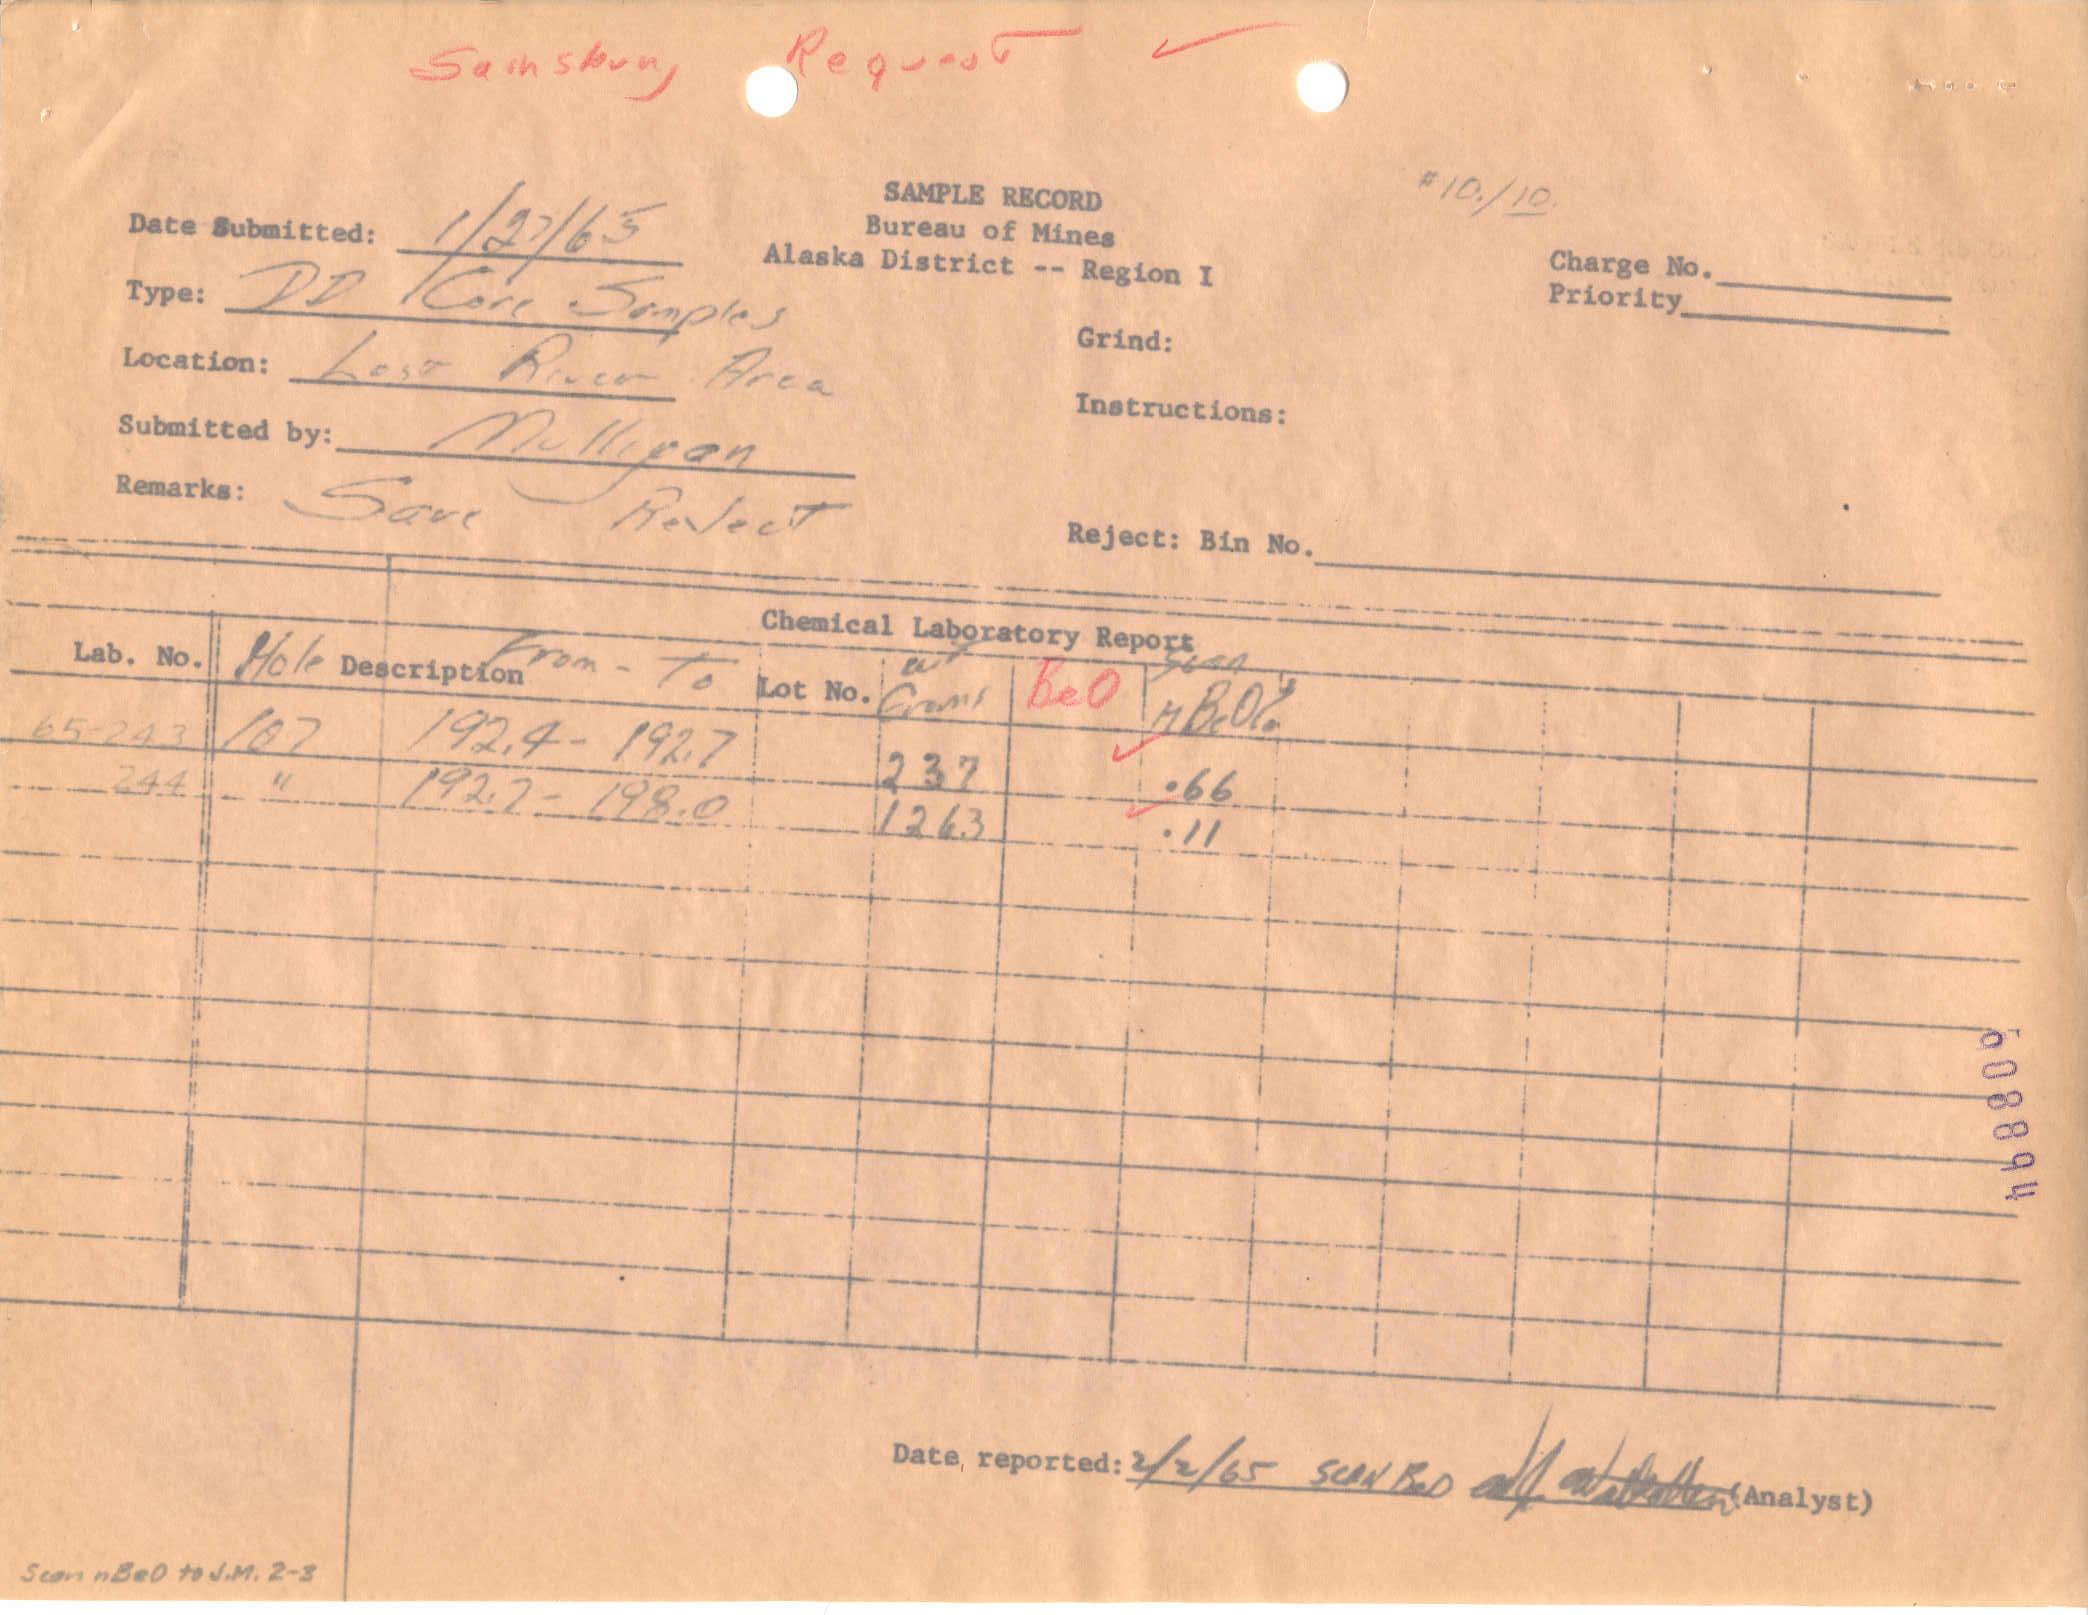 Sainsbury Request ✓
#10./10.
SAMPLE RECORD
Bureau of Mines
Alaska District -- Region I
Date Submitted: 1/27/65
Charge No.
Type: DD Core Samples
Priority
Grind:
Location: Lost River Area
Instructions:
Submitted by: Mulligan
Remarks: Save Reject
Reject: Bin No.
Chemical Laboratory Report
Lab. No. Hole Description From - To Lot No. wt Grams BeO Scan n BeO%
65-243 107 192.4 - 192.7 237 ✓ .66
244 " 192.7 - 198.0 1263 ✓ .11
Date reported: 2/2/65 SCAN BeO (Analyst)
Scan nBeO to J.M. 2-3